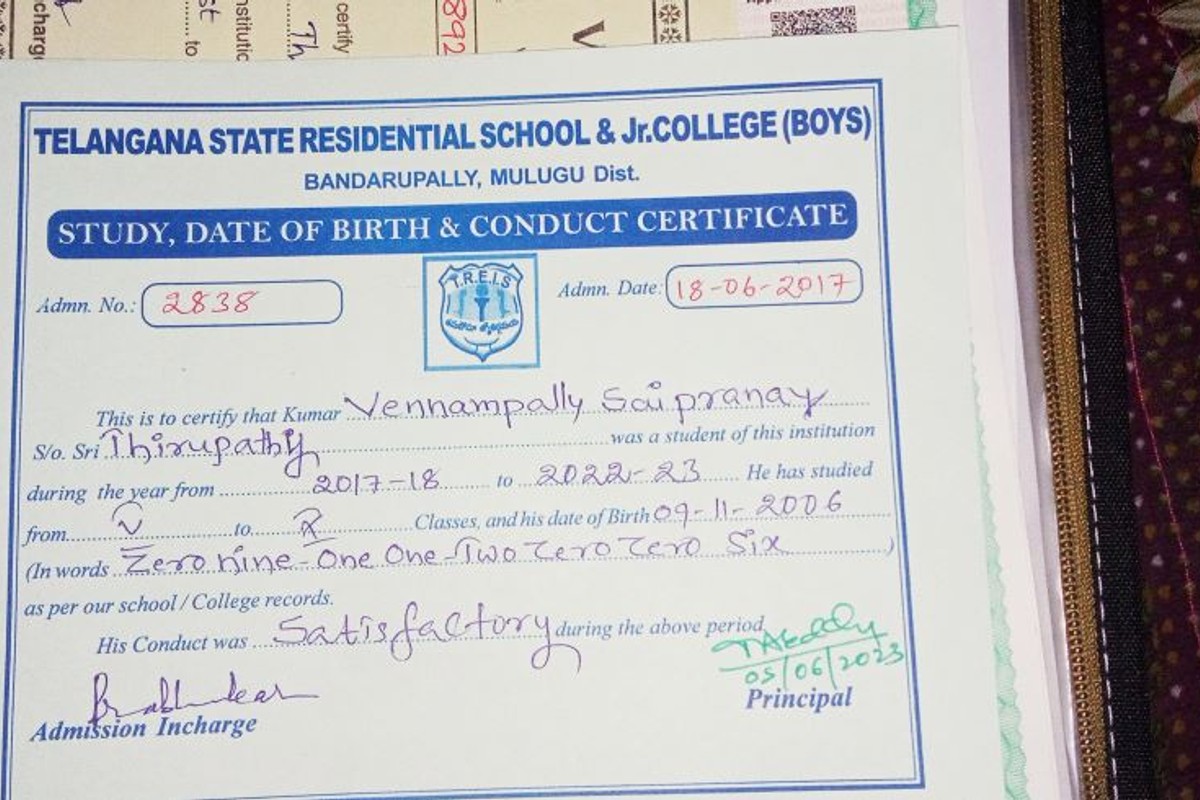 charge
st
...... to
institutio
certify
Th
892
V
TELANGANA STATE RESIDENTIAL SCHOOL & Jr.COLLEGE (BOYS)
BANDARUPALLY, MULUGU Dist.
STUDY, DATE OF BIRTH & CONDUCT CERTIFICATE
Admn. No.: 2838
T.R.E.I.S
Admn. Date: 18-06-2017
This is to certify that Kumar Vennampally Saipranay
S/o. Sri Thirupathy was a student of this institution
during the year from 2017-18 to 2022-23 He has studied
from V to X Classes, and his date of Birth 09-11-2006
(In words Zero nine-One One-Two Zero Zero Six)
as per our school / College records.
His Conduct was Satisfactory during the above period
05/06/2023
Principal
Admission Incharge